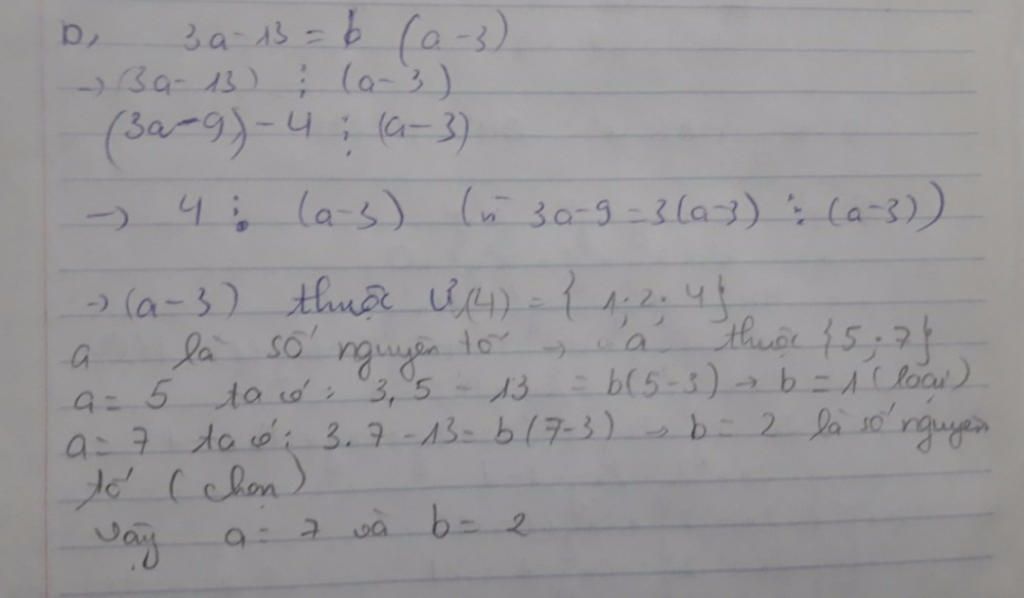 D, 3a-13 = b (a-3)
→ (3a-13) ⋮ (a-3)
(3a-9)-4 ⋮ (a-3)
→ 4 ⋮ (a-3) (vì 3a-9=3(a-3) ⋮ (a-3))
→ (a-3) thuộc Ư(4) = { 1; 2; 4}
a là số nguyên tố → a thuộc {5; 7}
a= 5 ta có: 3,5 - 13 = b(5-3) → b = 1 (loại)
a= 7 ta có: 3.7 -13= b(7-3) → b= 2 là số nguyên
tố (chọn)
Vậy a= 7 và b= 2